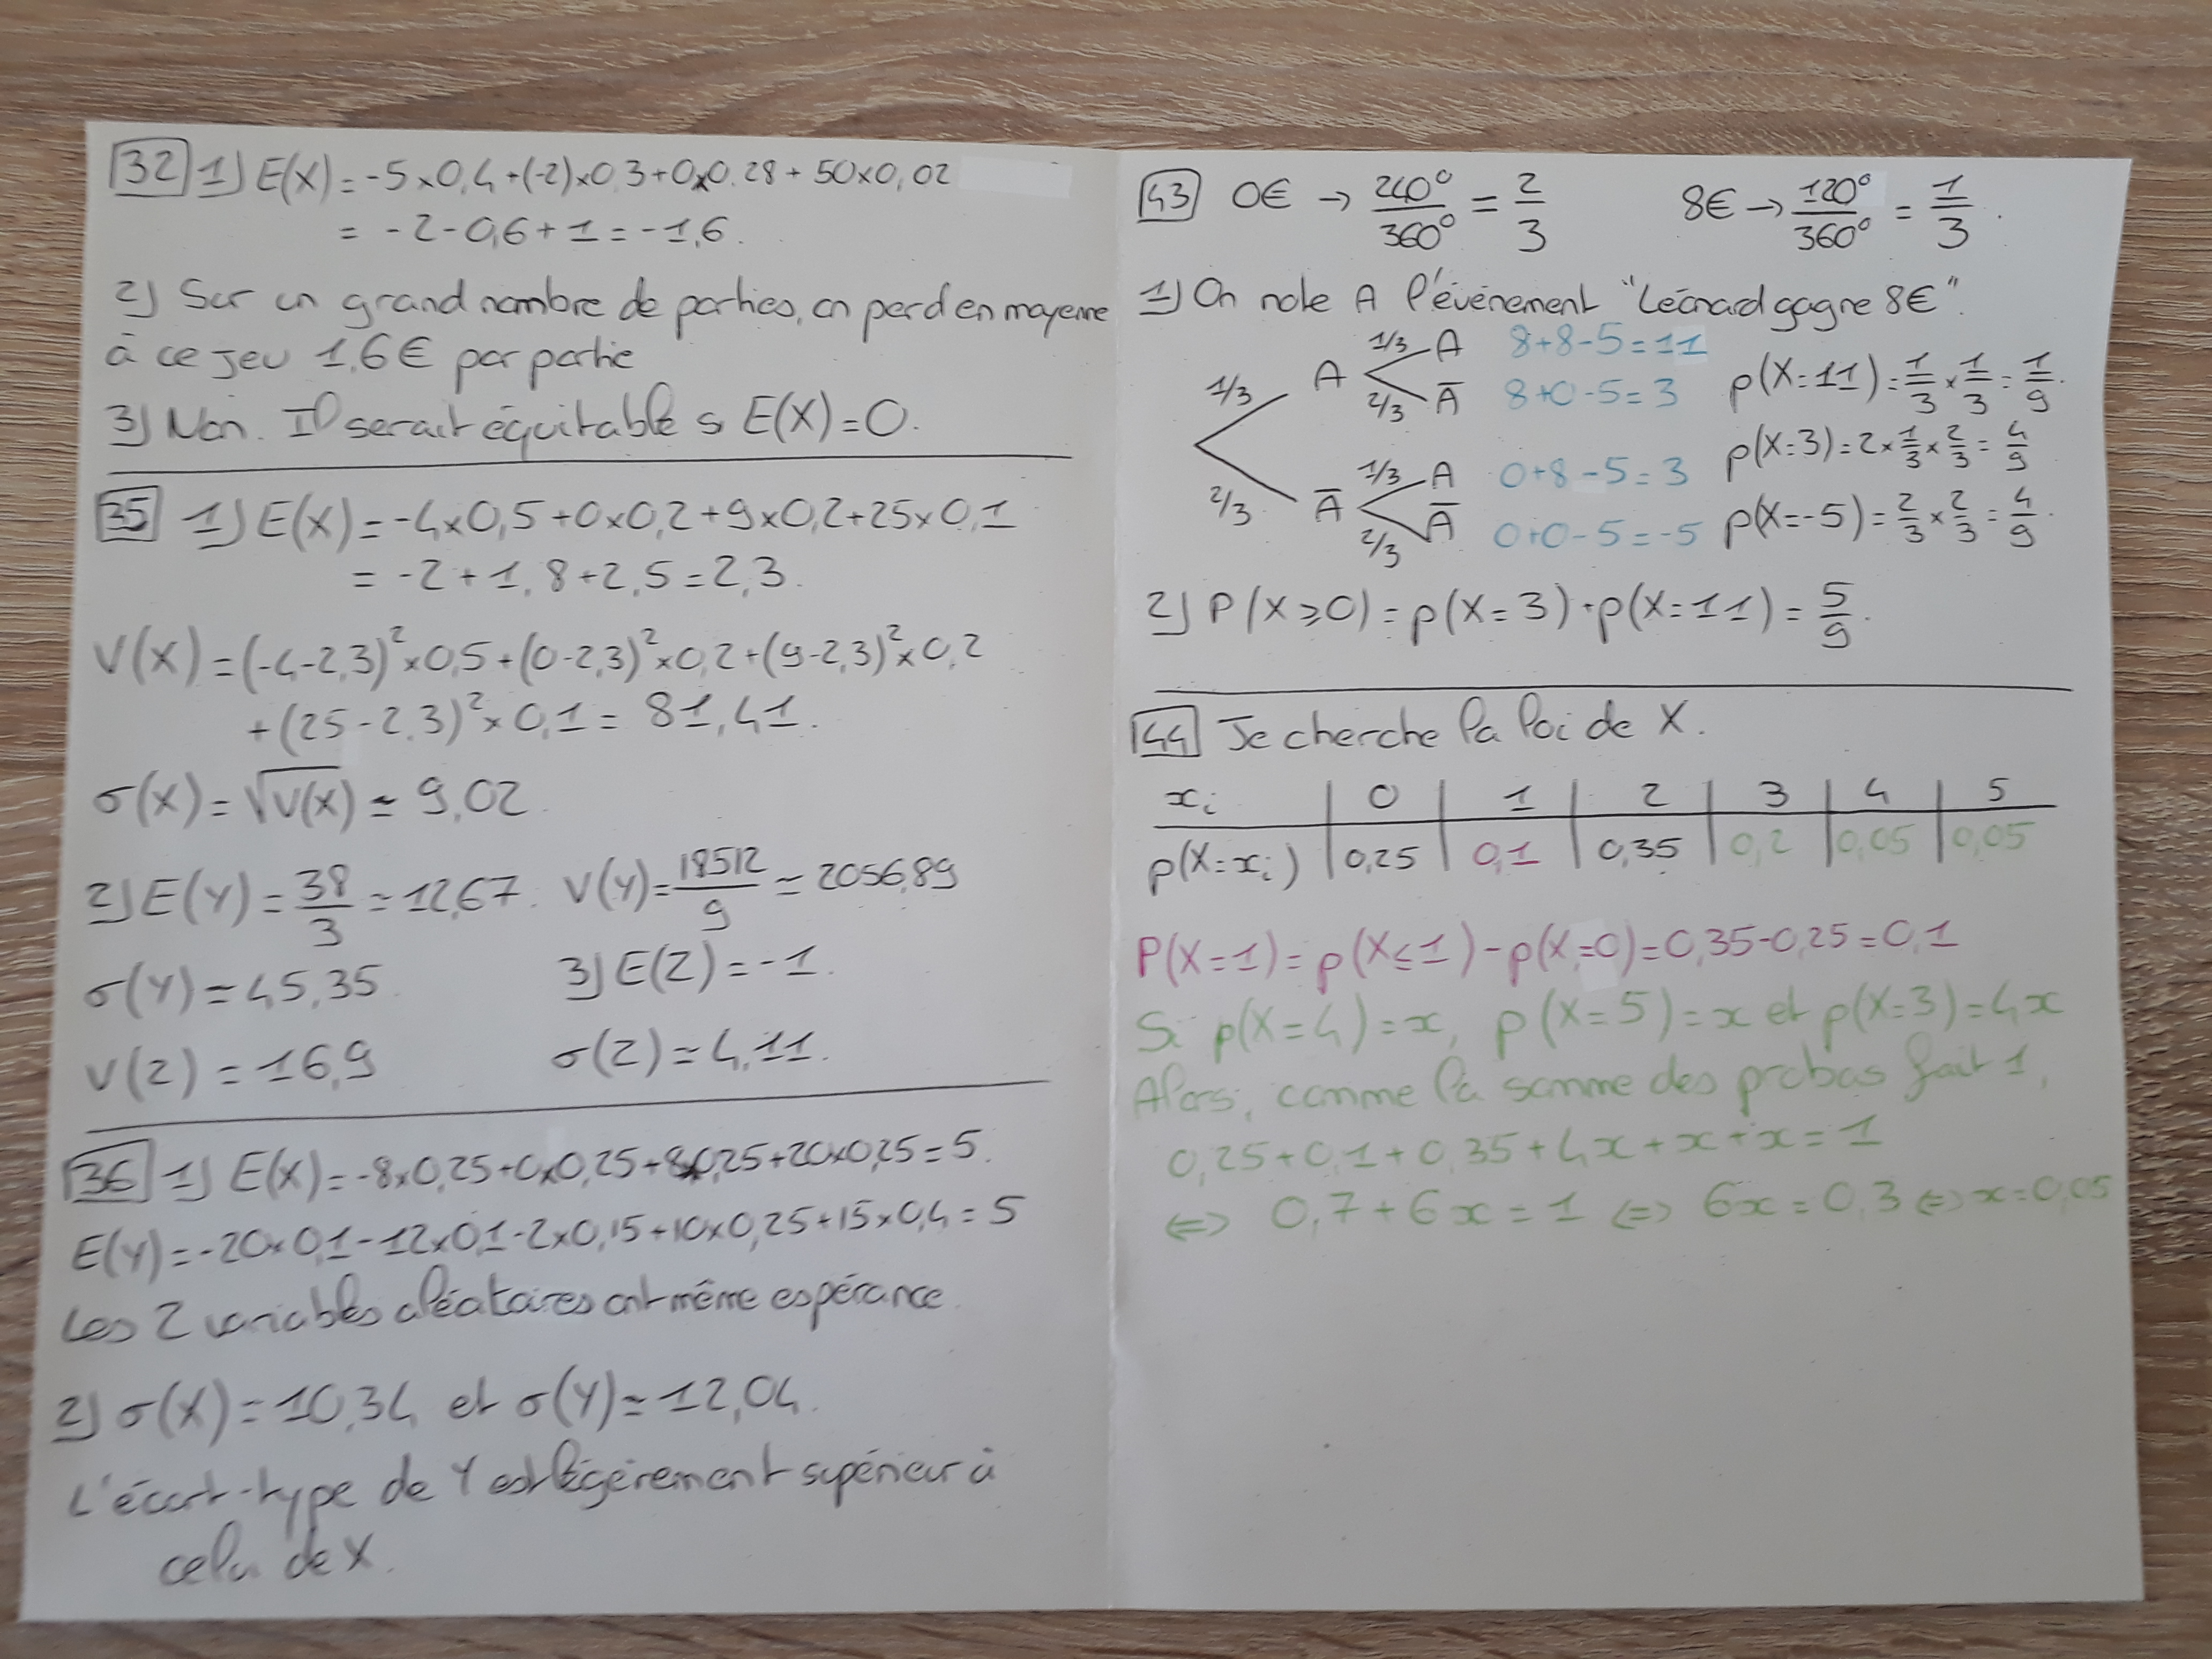 32 1) E(X) = -5×0,4+(-2)×0,3+0×0,28+50×0,02
= -2-0,6+1 = -1,6.
2) Sur un grand nombre de parties, on perd en moyenne
à ce jeu 1,6€ par partie
3) Non. Il serait équitable si E(X)=0.
35 1) E(X) = -4×0,5+0×0,2+9×0,2+25×0,1
= -2+1,8+2,5=2,3.
V(X) = (-4-2,3)²×0,5+(0-2,3)²×0,2+(9-2,3)²×0,2
+(25-2,3)²×0,1 = 81,41.
σ(X) = √V(X) ≈ 9,02
2) E(Y) = 38/3 ≈ 12,67. V(Y) = 18512/9 ≈ 2056,89
σ(Y) ≈ 45,35. 3) E(Z) = -1.
V(Z) = 16,9 σ(Z) ≈ 4,11.
36 1) E(X) = -8×0,25+0×0,25+8×0,25+20×0,25=5.
E(Y) = -20×0,1-12×0,1-2×0,15+10×0,25+15×0,4=5
Les 2 variables aléatoires ont même espérance.
2) σ(X) ≈ 10,34 et σ(Y) ≈ 12,04.
L'écart-type de Y est légèrement supérieur à
celui de X.
43 0€ → 240°/360° = 2/3 8€ → 120°/360° = 1/3.
1) On note A l'événement "Léonard gagne 8€".
1/3 A 8+8-5=11
1/3 A p(X=11) = 1/3 × 1/3 = 1/9.
2/3 A̅ 8+0-5=3
p(X=3)=2×1/3×2/3=4/9
1/3 A 0+8-5=3
2/3 A̅ p(X=-5) = 2/3 × 2/3 = 4/9.
2/3 A̅ 0+0-5=-5
2) P(X⩾0) = p(X=3)+p(X=11) = 5/9.
44 Je cherche la loi de X.
xᵢ 0 1 2 3 4 5
p(X=xᵢ) 0,25 0,1 0,35 0,2 0,05 0,05
P(X=1) = p(X≤1)-p(X=0)=0,35-0,25=0,1
Si p(X=4)=x, p(X=5)=x et p(X=3)=4x
Alors, comme la somme des probas fait 1,
0,25+0,1+0,35+4x+x+x=1
⇔ 0,7+6x=1 ⇔ 6x=0,3 ⇔ x=0,05